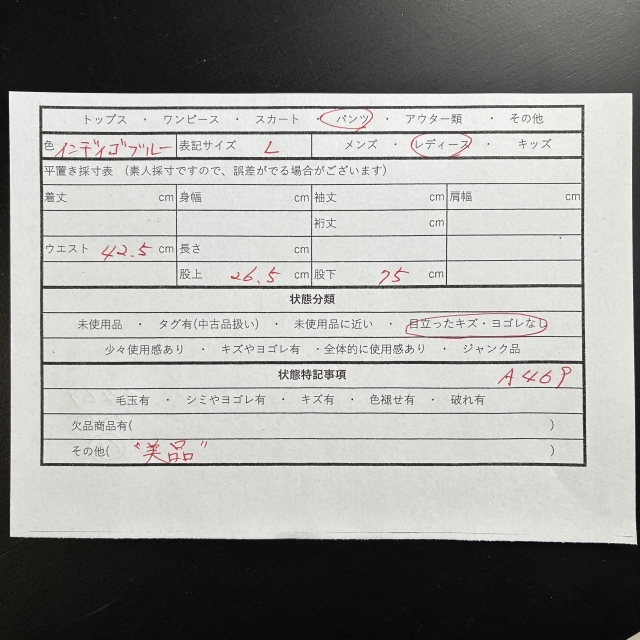 トップス ・ ワンピース ・ スカート ・ パンツ ・ アウター類 ・ その他
色 インディゴブルー 表記サイズ L メンズ ・ レディース ・ キッズ
平置き採寸表 (素人採寸ですので、誤差がでる場合がございます)
着丈 cm 身幅 cm 袖丈 cm 肩幅 cm
裄丈 cm
ウエスト 42.5 cm 長さ cm
股上 26.5 cm 股下 75 cm
状態分類
未使用品 ・ タグ有(中古品扱い) ・ 未使用品に近い ・ 目立ったキズ・ヨゴレなし
少々使用感あり ・ キズやヨゴレ有 ・全体的に使用感あり ・ ジャンク品
状態特記事項 A469
毛玉有 ・ シミやヨゴレ有 ・ キズ有 ・ 色褪せ有 ・ 破れ有
欠品商品有( )
その他( "美品" )